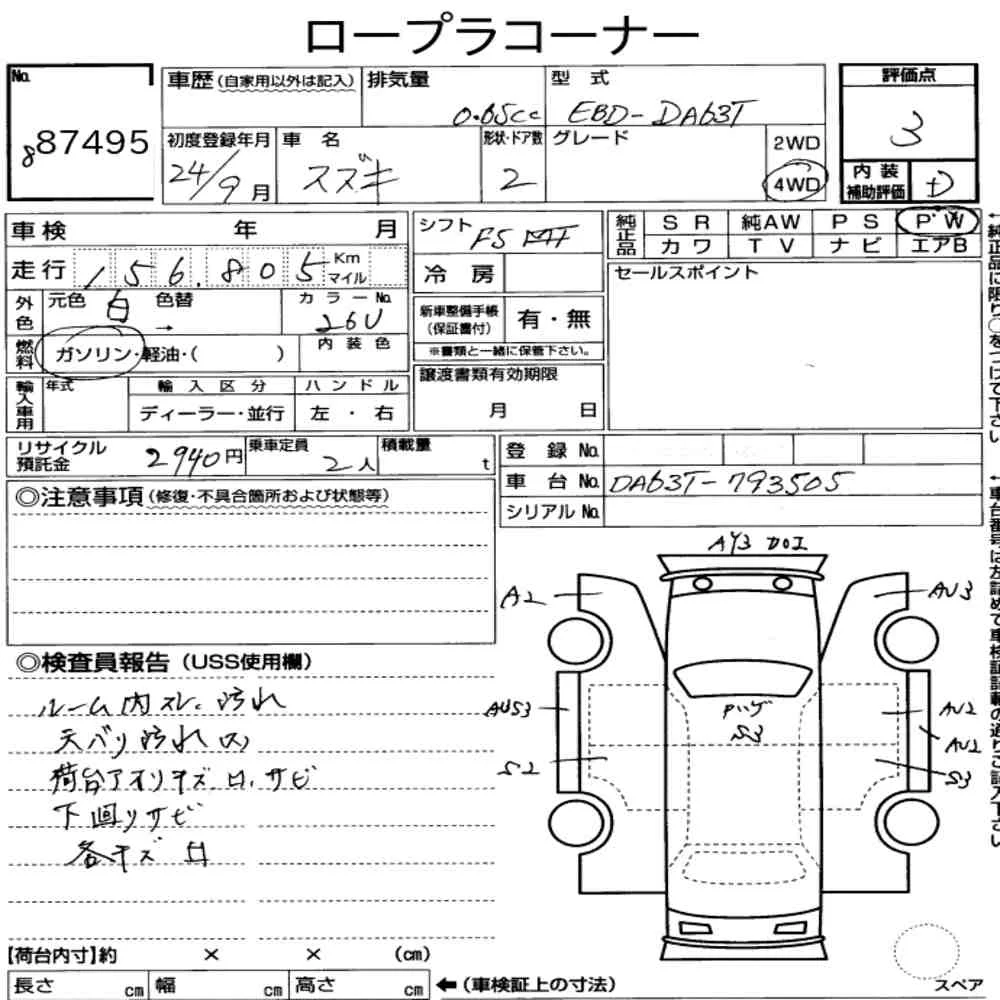 ロープラコーナー
No.
887495
車歴(自家用以外は記入)
排気量
0.65cc
型式
EBD-DA63T
評価点
3
初度登録年月
24/9月
車名
スズキ
形状・ドア数
2
グレード
2WD
4WD
内装
補助評価
D
車検 年 月
走行 156,805 Km
マイル
外色
元色 白 色替 →
カラーNo.
26U
燃料
ガソリン・軽油・( )
内装色
輸入車用
年式
輸入区分
ディーラー・並行
ハンドル
左・右
シフト F5
冷房
新車整備手帳
(保証書付)
有・無
※書類と一緒に保管下さい。
譲渡書類有効期限
月 日
純正品
SR 純AW PS PW
カワ TV ナビ エアB
セールスポイント
リサイクル
預託金
2940円
乗車定員
2人
積載量
t
登録No.
車台No. DA63T-793505
シリアルNo.
◎注意事項(修復・不具合箇所および状態等)
◎検査員報告(USS使用欄)
ルーム内スレ、汚れ
天バリ汚れ
荷台アオリキズ凹、サビ
下廻りサビ
各キズ凹
AY3
A2
AU3
AUS3
S2
S3
AU2
AU2
S3
【荷台内寸】約 × × (cm)
長さ cm 幅 cm 高さ cm ←(車検証上の寸法)
スペア
←純正品に限り○をつけて下さい
←車台番号は左詰めで車検証記載の通りご記入下さい